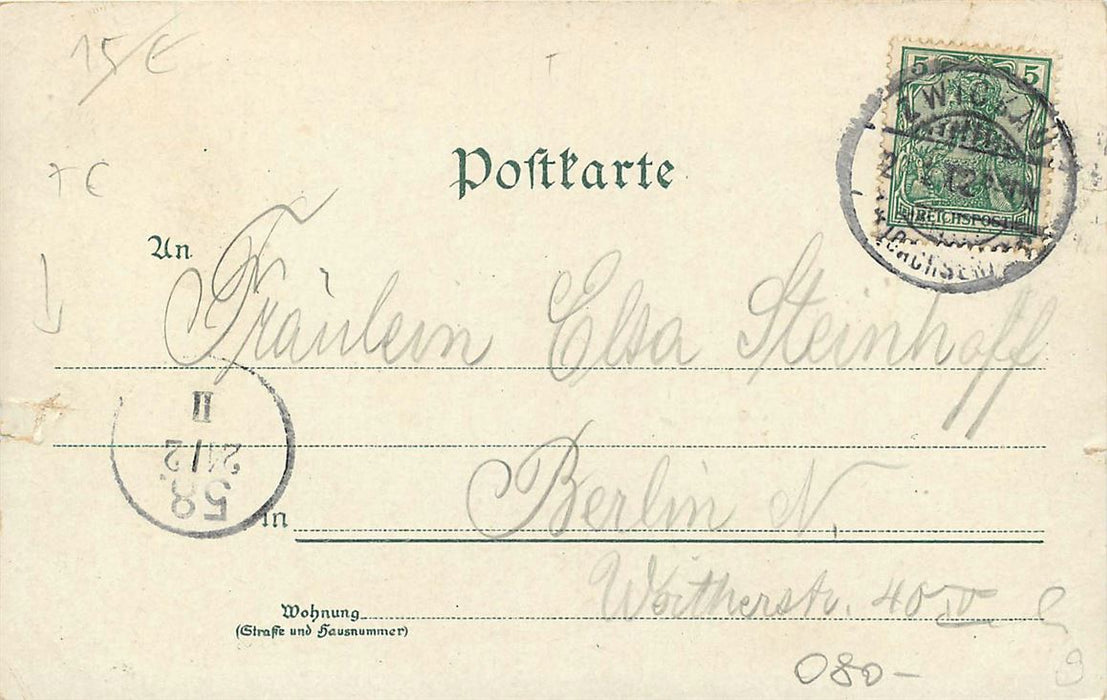 15 €
5 5
ZWICKAU
REICHSPOST
(SACHSEN)
Postkarte
€
An
Fräulein Elsa Steinhoff
II
21/2
58.
in Berlin N.
Wohnung
(Straße und Hausnummer)
40 IV
080-
9